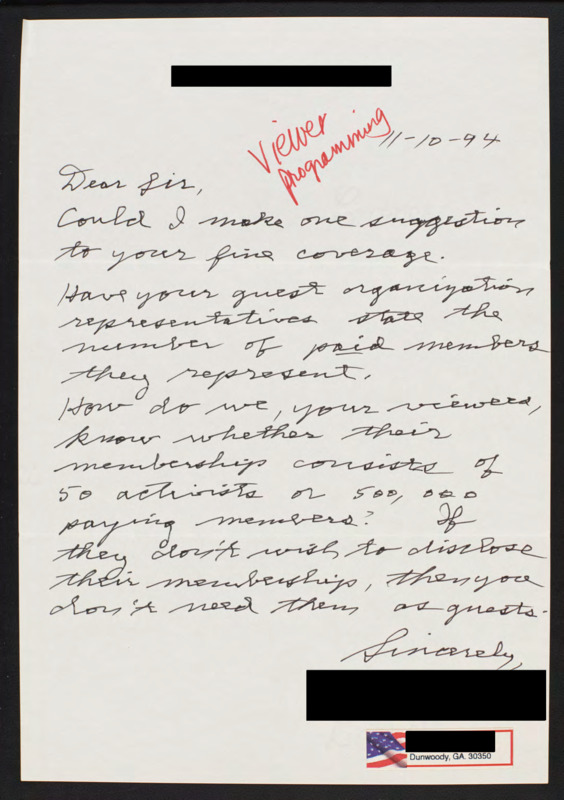 Viewer
programming
11-10-94
Dear Sir,
Could I make one suggestion
to your fine coverage.
Have your guest organization
representatives state the
number of paid members
they represent.
How do we, your viewers,
know whether their
membership consists of
50 activists or 500,000
paying members? If
they don't wish to disclose
their membership, then you
don't need them as guests.
Sincerely,
Dunwoody, GA 30350